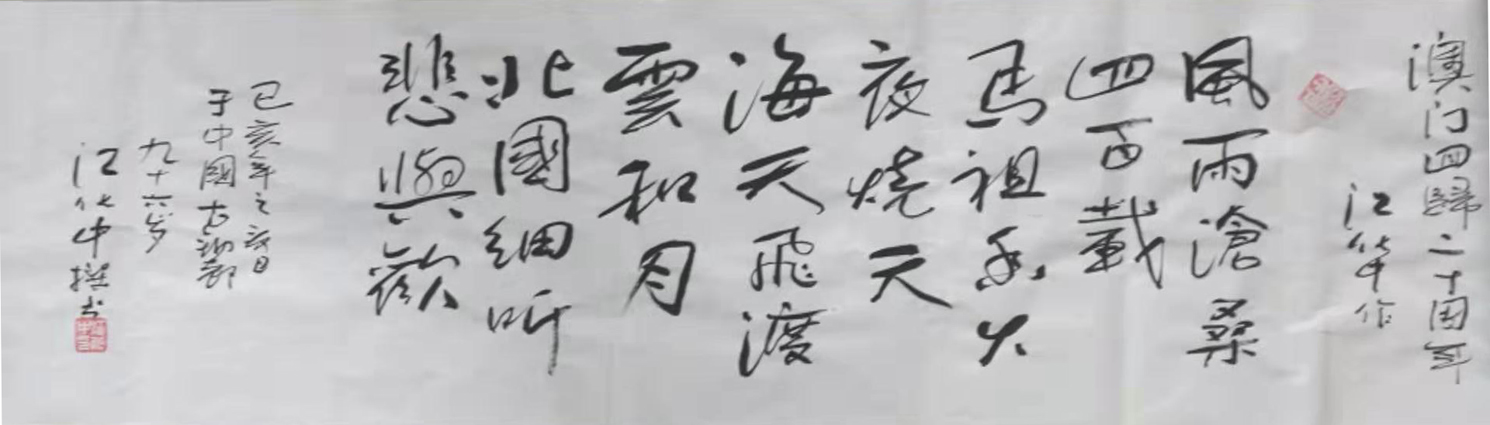 澳门回歸二十周年
江化中作
風雨滄桑
四百載
馬祖香火
夜燒天
海天飛渡
雲和月
北國細听
悲與歡
己亥年之
于中國古
九十六岁
江化中撰书